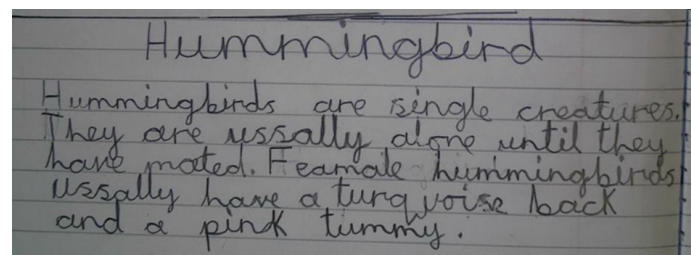 Hummingbird
Hummingbirds are single creatures.
They are ussally alone until they
have mated. Feamale hummingbirds
ussally have a turquoise back
and a pink tummy.